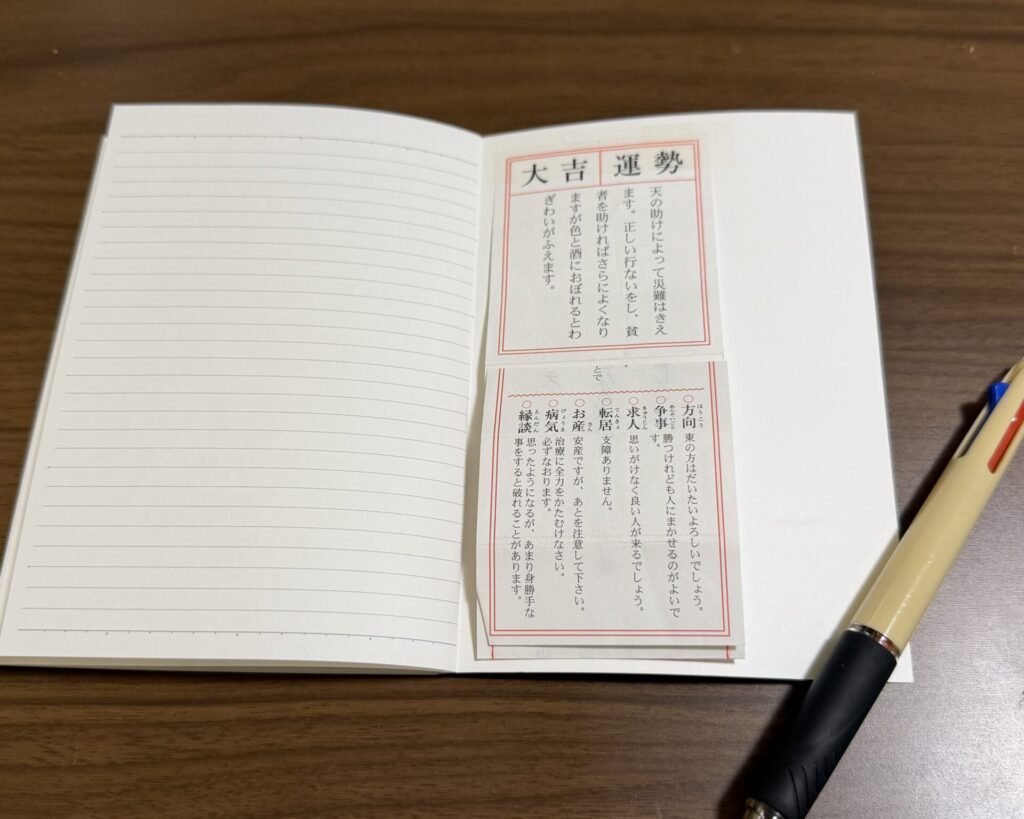 大吉 運勢
天の助けによって災難はきえ
ます。正しい行ないをし、貧
者を助ければさらによくなり
ますが色と酒におぼれるとわ
ざわいがふえます。
とで
○方向 東の方はだいたいよろしいでしょう。
ほうこう
○争事 勝つけれども人にまかせるのがよいで
あらそいごと
す。
○求人 思いがけなく良い人が来るでしょう。
きゅうじん
○転居 支障ありません。
てんきょ
○お産 安産ですが、あとを注意して下さい。
さん
○病気 治療に全力をかたむけなさい。
びょうき
必ずなおります。
○縁談 思ったようになるが、あまり身勝手な
えんだん
事をすると破れることがあります。